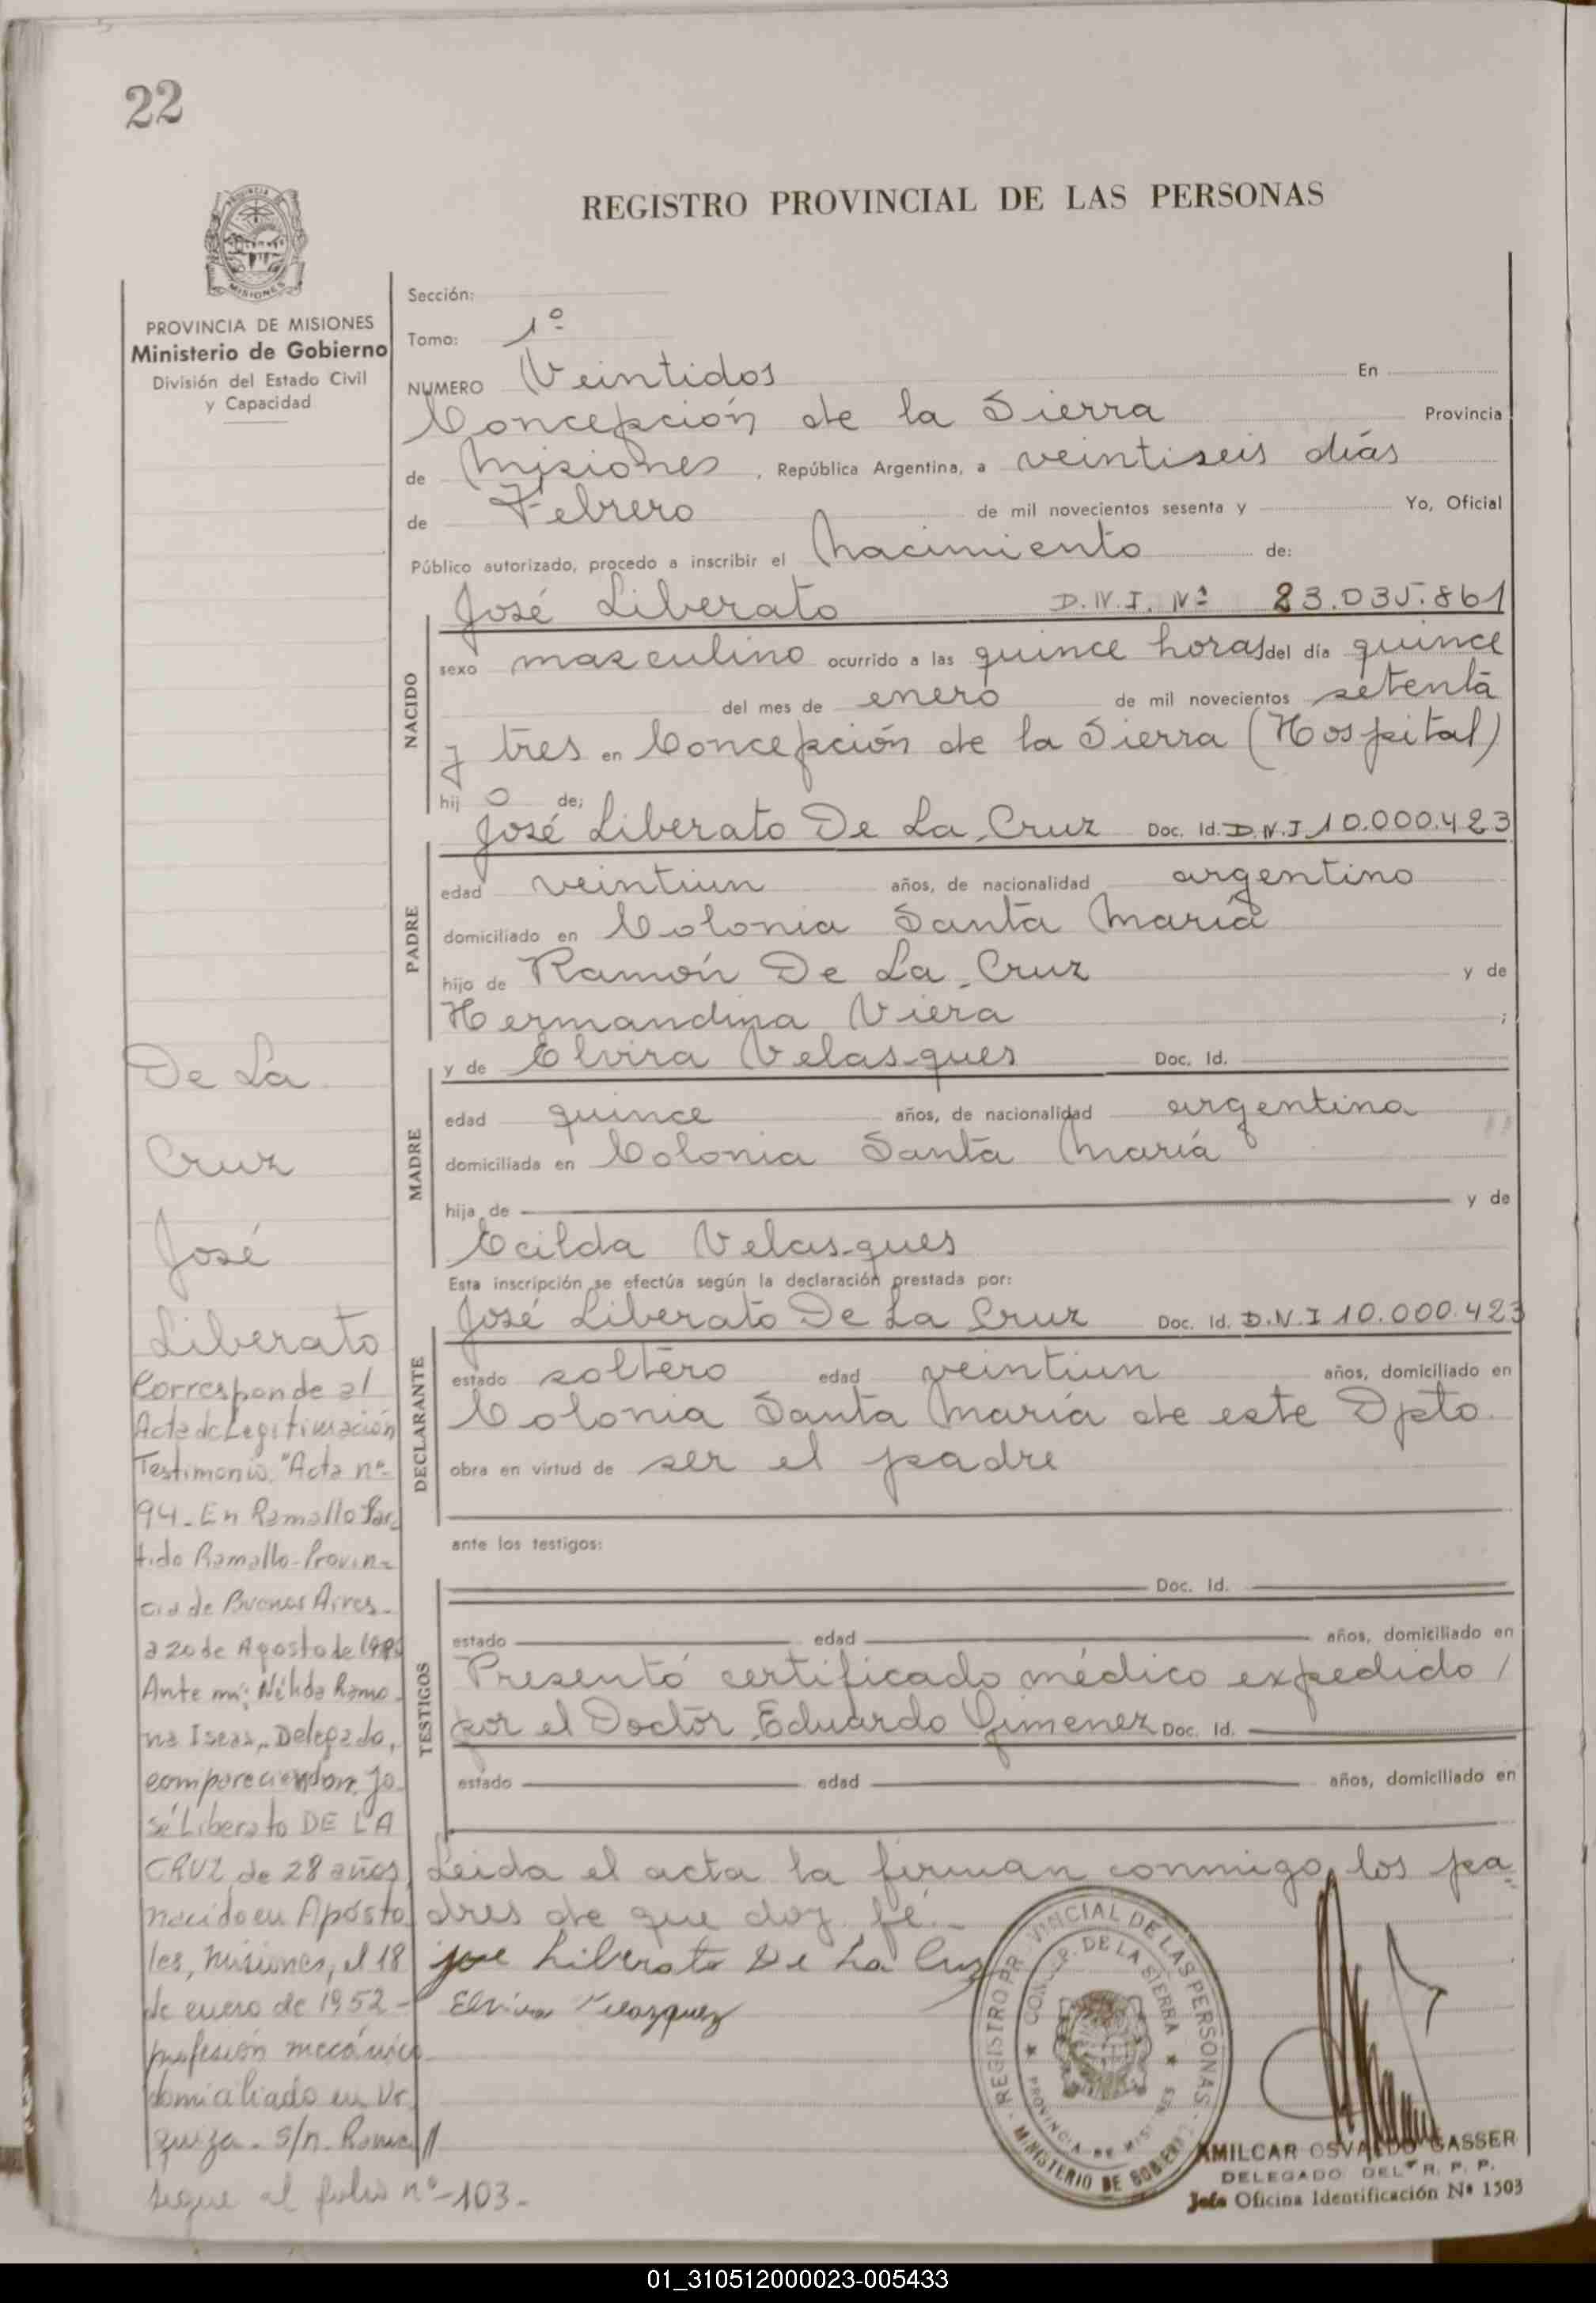 22
REGISTRO PROVINCIAL DE LAS PERSONAS
PROVINCIA
MISIONES
PROVINCIA DE MISIONES
Ministerio de Gobierno
División del Estado Civil
y Capacidad
Sección:
Tomo: 1º
NUMERO Veintidos En
Concepción de la Sierra Provincia
de Misiones, República Argentina, a veintiseis días
de Febrero de mil novecientos sesenta y Yo, Oficial
Público autorizado, procedo a inscribir el Nacimiento de:
José Liberato D.N.I. Nº 23.035.861
NACIDO
sexo masculino ocurrido a las quince horas del día quince
del mes de enero de mil novecientos setenta
y tres en Concepción de la Sierra (Hospital)
hij o de;
José Liberato De La Cruz Doc. Id. D.N.I 10.000.423
PADRE
edad veintiun años, de nacionalidad argentino
domiciliado en Colonia Santa María
hijo de Ramón De La Cruz y de
Hermandina Viera ;
y de Elvira Velasques Doc. Id.
MADRE
edad quince años, de nacionalidad argentina
domiciliada en Colonia Santa María
hija de y de
Velasques
Esta inscripción se efectúa según la declaración prestada por:
José Liberato De La Cruz Doc. Id. D.N.I 10.000.423
DECLARANTE
estado soltero edad veintiun años, domiciliado en
Colonia Santa María de este Dpto.
obra en virtud de ser el padre
ante los testigos:
Doc. Id.
TESTIGOS
estado edad años, domiciliado en
Presentó certificado médico expedido /
por el Doctor Eduardo Gimenez Doc. Id.
estado edad años, domiciliado en
Leida el acta la firman conmigo los pa-
dres de que doy fé.-
José Liberato De La Cruz
Elvira Velazquez
De La
Cruz
José
Liberato
Corresponde al
Acta de Legitimación
Testimonio. "Acta nº
94.- En Ramallo Par-
tido Ramallo-Provin-
cia de Buenos Aires-
a 20 de Agosto de
Ante mi; Nélida Ramo-
na Delegado,
compareciendon Jo-
sé Liberato DE LA
CRUZ de 28 años,
nacido en Aposto
les, Misiones, el 18
de enero de 1952 -
profesión mecánico
domiciliado en Ur
quiza - S/n. Ramall
sigue al folio nº-103-
REGISTRO PROVINCIAL DE LAS PERSONAS
MINISTERIO DE GOBIERNO
CONCEP. DE LA SIERRA
PROVINCIA DE MISIONES
AMILCAR OSVALDO GASSER
DELEGADO DEL R. P. P.
Jefe Oficina Identificación Nº 1503
01_310512000023-005433